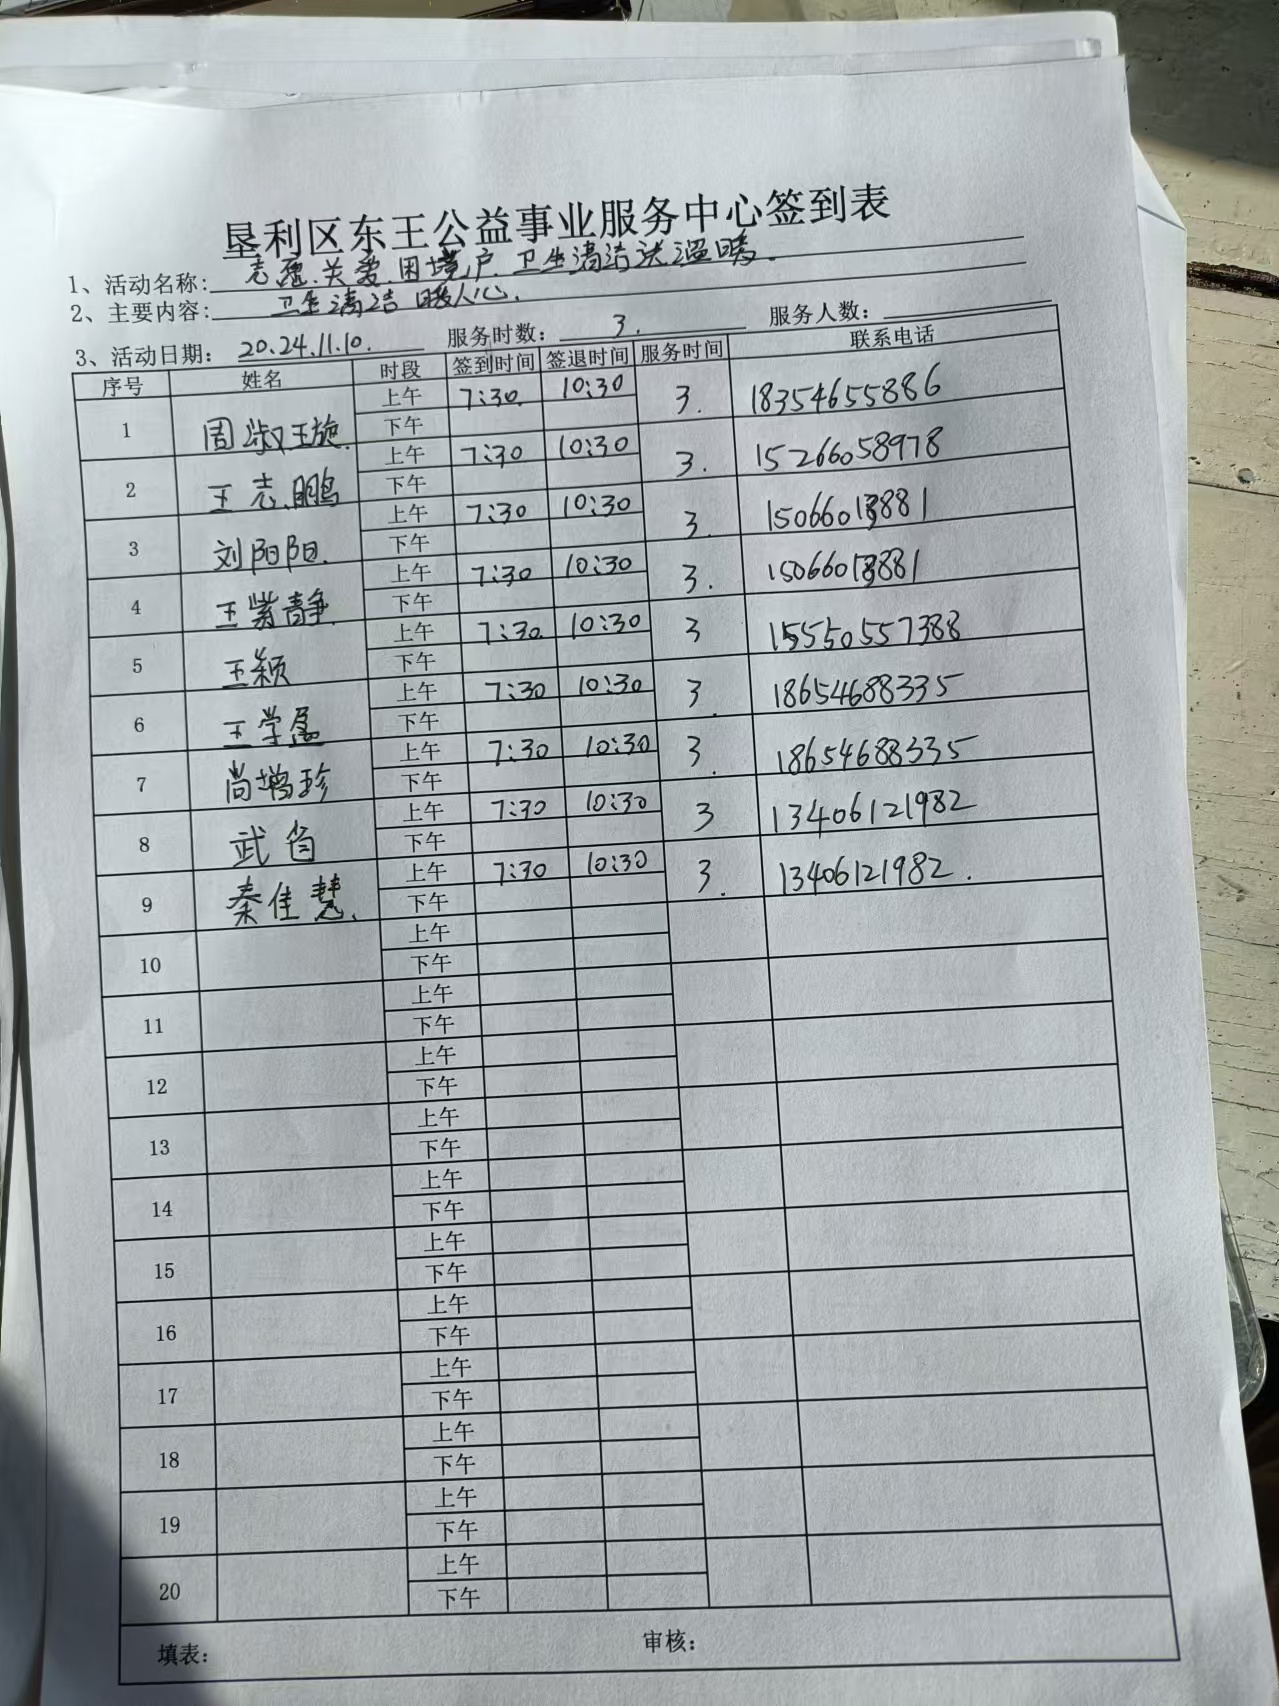 垦利区东王公益事业服务中心签到表
1、活动名称: 志愿.关爱.困境户.卫生清洁送温暖.
2、主要内容: 卫生清洁 暖人心.
3、活动日期: 2024.11.10. 服务时数: 3. 服务人数:
序号 姓名 时段 签到时间 签退时间 服务时间 联系电话
1 周淑璇. 上午 7:30 10:30 3. 18354655886
下午
2 王志鹏 上午 7:30 10:30 3. 15266058978
下午
3 刘阳阳. 上午 7:30 10:30 3. 15066013881
下午
4 王紫静. 上午 7:30 10:30 3. 15066013881
下午
5 王颖 上午 7:30 10:30 3 15550557388
下午
6 王学盈 上午 7:30 10:30 3. 18654688335
下午
7 尚增珍 上午 7:30 10:30 3. 18654688335
下午
8 武 上午 7:30 10:30 3 13406121982
下午
9 秦佳慧. 上午 7:30 10:30 3. 13406121982.
下午
10 上午
下午
11 上午
下午
12 上午
下午
13 上午
下午
14 上午
下午
15 上午
下午
16 上午
下午
17 上午
下午
18 上午
下午
19 上午
下午
20 上午
下午
填表: 审核: